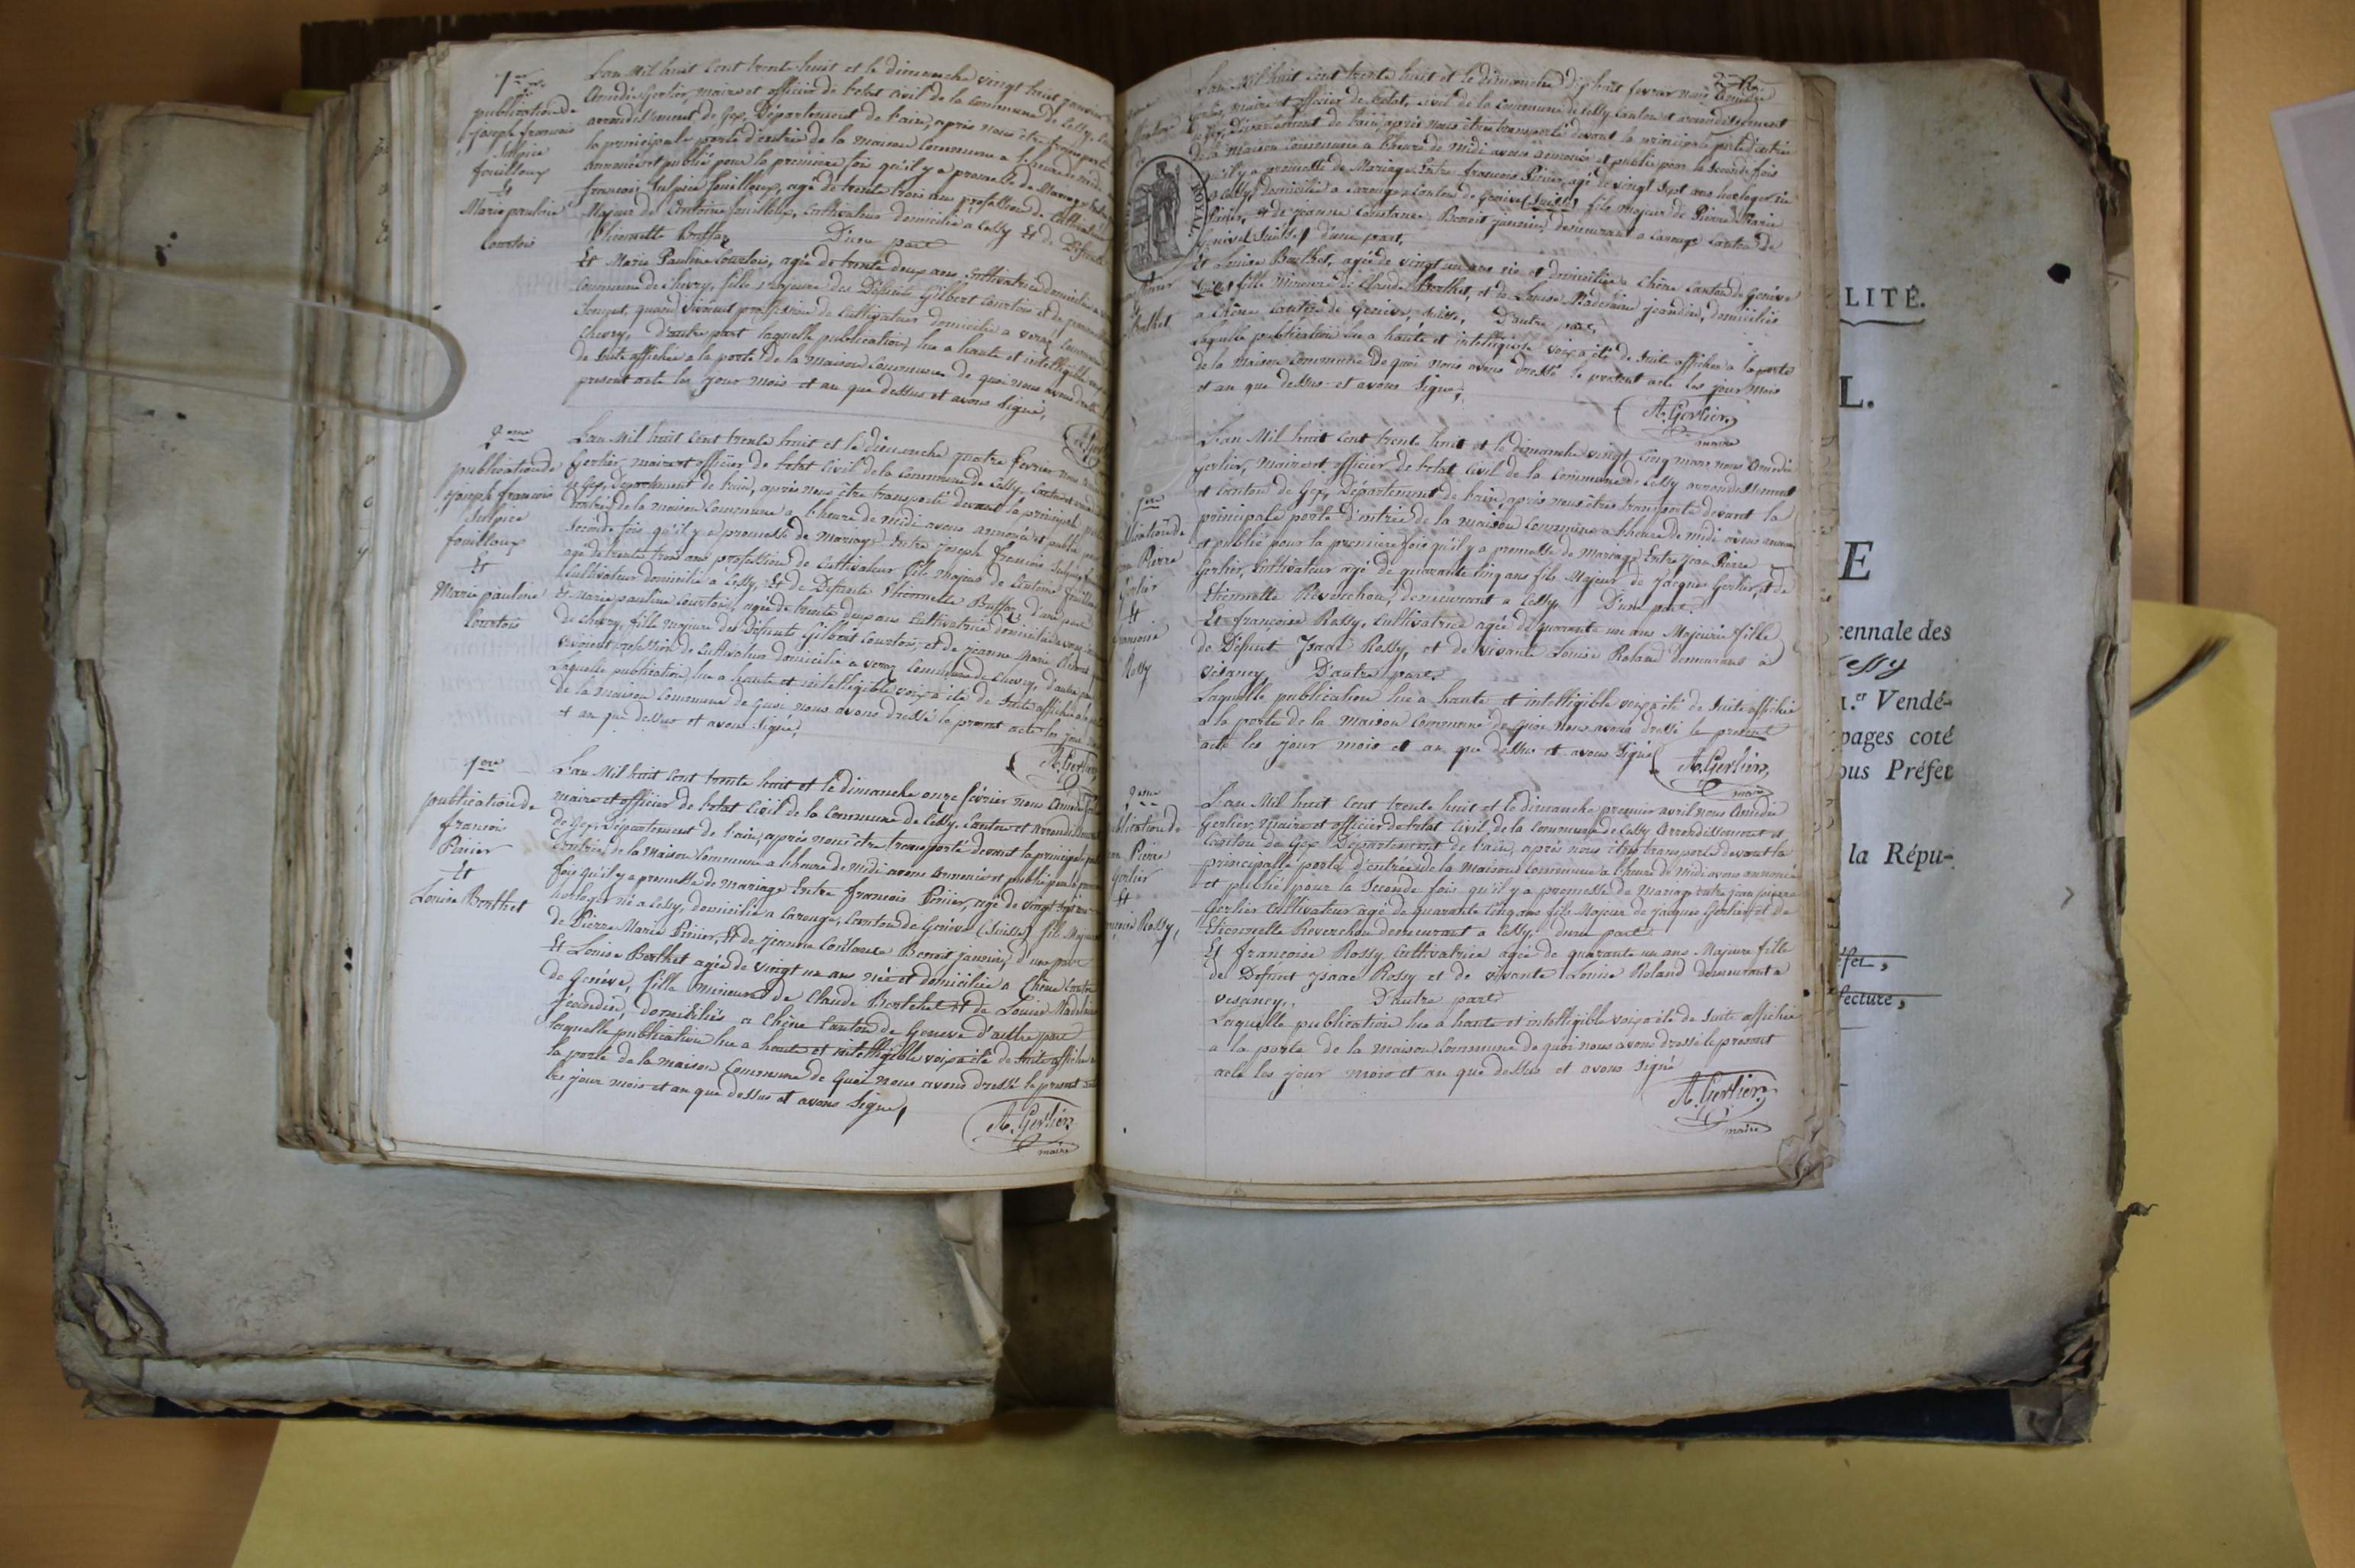 1ere
publication de
joseph francois
Sulpice
fouilloux
Et
Marie pauline
Courtois
L'an Mil huit Cent trente huit et le dimanche vingt huit janvier
Amédée Gerlier, maire et officier de l'etat Civil de la Commune de Cessy,
arrondissement de Gex, Département de l'ain, après nous être transporté
la principale porte d'entrée de la maison Commune a l'heure de midi
Annoncé et publié pour la première fois qu'il y a promesse de Mariage
françois Sulpice fouilloux, agé de trente trois ans profession de Cultivateur
Majeur de Antoine fouilloux, Cultivateur domicilié a Cessy Et de Défunte
Thiennette Buffaz D'une part
Et Marie Pauline Courtois, agée de trente deux ans Cultivatrice domiciliée a
Commune de Chevry, fille Majeure des Défunts Gilbert Courtois et de
quand vivoient profession de Cultivateur domicilié a veraz Commune
Chevry, D'autre part laquelle publication, lue a haute et intelligible
de Suite affichée a la porte de la Maison Commune de quoi nous avons dressé
present acte les jour mois et an que dessus et avons Signé,
2eme
publication de
joseph francois
Sulpice
fouilloux
Et
Marie pauline
Courtois
L'an Mil huit Cent trente huit et le dimanche quatre fevrier nous
Gerlier, maire et officier de l'etat Civil de la Commune de Cessy, Canton et
de Gex, Département de l'ain, après nous être transporté devant la principale
d'entrée de la maison Commune a l'heure de midi avons annoncé et publié
Seconde fois qu'il y a promesse de Mariage Entre joseph francois Sulpice
agé de trente trois ans profession de Cultivateur fils majeur de Antoine
Cultivateur domicilié a Cessy, Et de Défunte Thiennette Buffaz D'une part
Et Marie pauline Courtois, agée de trente deux ans Cultivatrice domiciliée a veraz
de Chevry, fille majeure des Défunts Gilbert Courtois, et de jeanne Marie
vivoient profession de Cultivateur domicilié a veraz Commune de Chevry, d'autre part
Laquelle publication, lue a haute et intelligible voix a été de Suite affichée
de la maison Commune de quoi nous avons dressé le present acte les jour
et an que dessus et avons Signé,
A. Gerlier
1ere
publication de
francois
Pinier
Et
Louise Berthet
L'an Mil huit Cent trente huit et le dimanche onze février nous Amédée
maire et officier de l'etat Civil de la Commune de Cessy, Canton et Arrondissement
de Gex, Département de l'ain, après nous être transporté devant la principale
d'entrée de la Maison Commune a l'heure de Midi avons Annoncé et publié pour la
fois qu'il y a promesse de mariage Entre francois Pinier, agé de vingt Sept ans
horloger né a Cessy, domicilié a Carouge, Canton de Genève (Suisse) fils Majeur
de Pierre Marie Pinier, Et de jeanne Constance Benoit janvier, d'une part
Et Louise Berthet agée de vingt un ans née et domiciliée a Chêne Canton
de Genève, fille mineure de Claude Berthet et de Louise Madelaine
jeandin, domiciliés a Chêne Canton de Geneve d'autre part
laquelle publication lue a haute et intelligible voix a été de Suite affichée
la porte de la maison Commune de quoi nous avons dressé le present
les jour mois et an que dessus et avons Signé,
A. Gerlier
maire
ROYAL.
Berthet
L'an Mil huit Cent trente huit et le dimanche dix huit fevrier nous Amédée
Gerlier, maire et officier de l'etat, civil de la Commune de Cessy Canton et arrondissement
de Gex, Département de l'ain, après nous être transporté devant la principale porte d'entrée
de la maison Commune a l'heure de midi avons annoncé et publié pour la Seconde fois
qu'il y a promesse de Mariage Entre francois Pinier, agé de vingt Sept ans horloger, né
a Cessy, domicilié a Carouge, Canton de Genève (Suisse) fils majeur de Pierre Marie
Pinier, et de jeanne Constance Benoit janvier, demeurant a Carouge Canton de
Genève (Suisse) d'une part,
Et Louise Berthet, agée de vingt un ans née et domiciliée a Chêne Canton de Genève
Suisse, fille Mineure de Claude Berthet, et de Louise Madelaine jeandin, domiciliés
a Chêne Canton de Genève, Suisse, D'autre part,
Laquelle publication lue a haute et intelligible voix a été de Suite affichée a la porte
de la Maison Commune de quoi nous avons dressé le present acte les jour mois
et an que dessus et avons Signé,
A. Gerlier
maire
1ere
Pierre
Gerlier
Et
Rossy
L'an Mil huit Cent trente huit et le dimanche vingt Cinq mars nous Amédée
Gerlier, Maire et officier de l'etat Civil de la Commune de Cessy arrondissement
et Canton de Gex, Département de l'ain, après nous être transporté devant la
principale porte d'entrée de la maison Commune a l'heure de midi avons annoncé
et publié pour la premiere fois qu'il y a promesse de Mariage Entre jean Pierre
Gerlier, Cultivateur agé de quarante Cinq ans fils Majeur de jacques Gerlier, et de
Etiennette Reverchon, demeurant a Cessy, D'une part.
Et françoise Rossy, Cultivatrice agée de quarante un ans Majeure fille
de Défunt Isaac Rossy, et de vivante Louise Roland demeurant à
Vesancy, D'autre part.
Laquelle publication lue a haute et intelligible voix a été de Suite affichée
a la porte de la Maison Commune de quoi nous avons dressé le present
acte les jour mois et an que dessus et avons Signé
A. Gerlier,
maire
2eme
Pierre
Gerlier
Et
Rossy,
L'an Mil huit Cent trente huit et le dimanche premier avril nous Amédée
Gerlier, Maire et officier de l'etat Civil, de la Commune de Cessy Arrondissement et
Canton de Gex Département de l'ain, après nous être transporté devant la
principalle porte d'entrée de la maison Commune a l'heure de Midi avons annoncé
et publié pour la Seconde fois qu'il y a promesse de Mariage entre jean pierre
Gerlier Cultivateur agé de quarante Cinq ans fils Majeur de jacques Gerlier, et de
Etiennette Reverchon demeurant a Cessy, d'une part
Et françoise Rossy, Cultivatrice agée de quarante un ans Majeure fille
de Defunt Isaac Rossy et de vivante Louise Roland demeurant a
Vesancy, D'autre part
Laquelle publication lue a haute et intelligible voix a été de Suite affichée
a la porte de la maison Commune de quoi nous avons dressé le present
acte les jour mois et an que dessus et avons Signé
A. Gerlier
maire
LITÉ.
L.
E
cennale des
essy
er Vendé-
pages coté
ous Préfet
la Répu-
efet,
fecture,